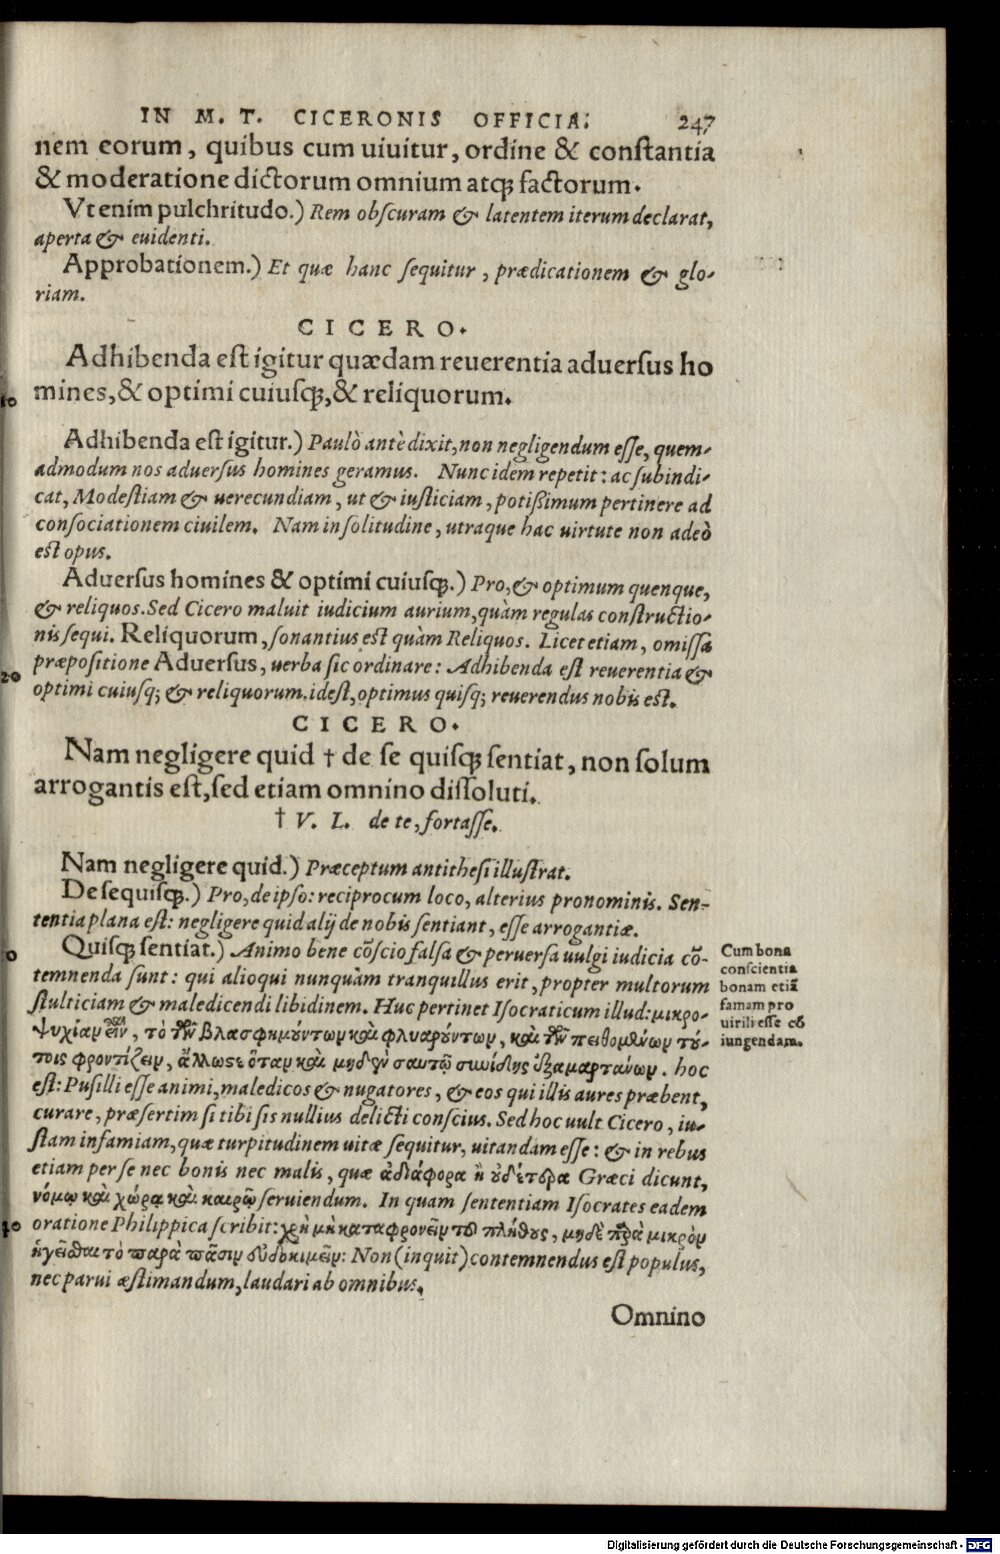 IN M. T. CICERONIS OFFICIA. 247
nem eorum, quibus cum uiuitur, ordine & constantia
& moderatione dictorum omnium atq; factorum.
Vt enim pulchritudo.) Rem obscuram & latentem iterum declarat,
aperta & euidenti.
Approbationem.) Et quæ hanc sequitur, prædicationem & glo-
riam.
CICERO.
Adhibenda est igitur quædam reuerentia aduersus ho
10 mines, & optimi cuiusq;, & reliquorum.
Adhibenda est igitur.) Paulò antè dixit, non negligendum esse, quem-
admodum nos aduersus homines geramus. Nunc idem repetit: ac subindi-
cat, Modestiam & uerecundiam, ut & iusticiam, potißimum pertinere ad
consociationem ciuilem. Nam in solitudine, utraque hac uirtute non adeò
est opus.
Aduersus homines & optimi cuiusq;.) Pro, & optimum quenque,
& reliquos. Sed Cicero maluit iudicium aurium, quàm regulas constructio-
nis sequi. Reliquorum, sonantius est quàm Reliquos. Licet etiam, omissa
præpositione Aduersus, uerba sic ordinare: Adhibenda est reuerentia &
20 optimi cuiusq; & reliquorum. idest, optimus quisq; reuerendus nobis est.
CICERO.
Nam negligere quid † de se quisq; sentiat, non solum
arrogantis est, sed etiam omnino dissoluti.
† V. L. de te, fortasse.
Nam negligere quid.) Præceptum antithesi illustrat.
De se quisq;.) Pro, de ipso: reciprocum loco, alterius pronominis. Sen-
tentia plana est: negligere quid alij de nobis sentiant, esse arrogantiæ.
Quisq; sentiat.) Animo bene cōscio falsa & peruersa uulgi iudicia cō-
temnenda sunt: qui alioqui nunquàm tranquillus erit, propter multorum
stulticiam & maledicendi libidinem. Huc pertinet Isocraticum illud: μικρο-
ψυχίαν εἶν, τὸ τῶν βλασφημούντων καὶ φλυαρούντων, καὶ τῶν πειθομένων τού-
τοις φροντίζειν, ἄλλως τε ὅταν καὶ μηδὲν σαυτῷ συνίδης ἐξαμαρτάνων. hoc
est: Pusilli esse animi, maledicos & nugatores, & eos qui illis aures præbent,
curare, præsertim si tibi sis nullius delicti conscius. Sed hoc uult Cicero, iu-
stam infamiam, quæ turpitudinem uitæ sequitur, uitandam esse: & in rebus
etiam per se nec bonis nec malis, quæ ἀδιάφορα ἢ οὐδέτερα Græci dicunt,
νόμῳ καὶ χώρᾳ καὶ καιρῷ seruiendum. In quam sententiam Isocrates eadem
oratione Philippica scribit: χρὴ μὴ καταφρονεῖν τοῦ πλήθους, μηδὲ παρὰ μικρὸν
ἡγεῖσθαι τὸ παρὰ πᾶσιν εὐδοκιμεῖν: Non (inquit) contemnendus est populus,
nec parui æstimandum, laudari ab omnibus.
Omnino
Cum bona
conscientia
bonam etiā
famam pro
uirili esse cō
iungendam.
Digitalisierung gefördert durch die Deutsche Forschungsgemeinschaft - DFG